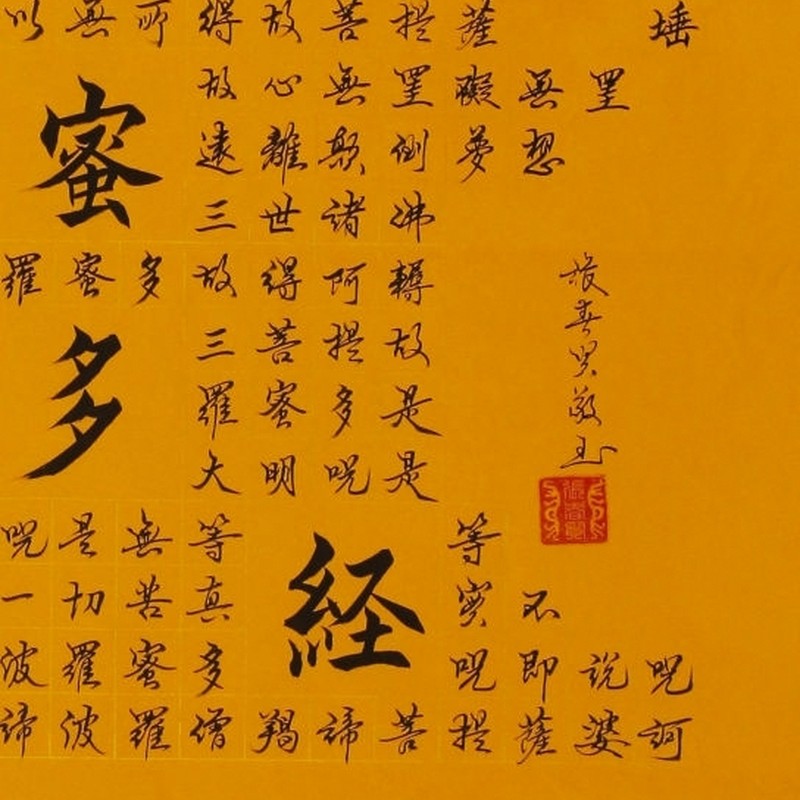 以無所得故菩提薩埵
蜜
故心無罣礙無罣
遠離顛倒夢想
三世諸佛
羅蜜多故得阿耨
多
三菩提故
羅蜜多是
大明咒是
咒是無等等
経
一切苦真實不
波羅蜜多咒即說咒
諦波羅僧羯諦菩提薩婆訶
張春敬書